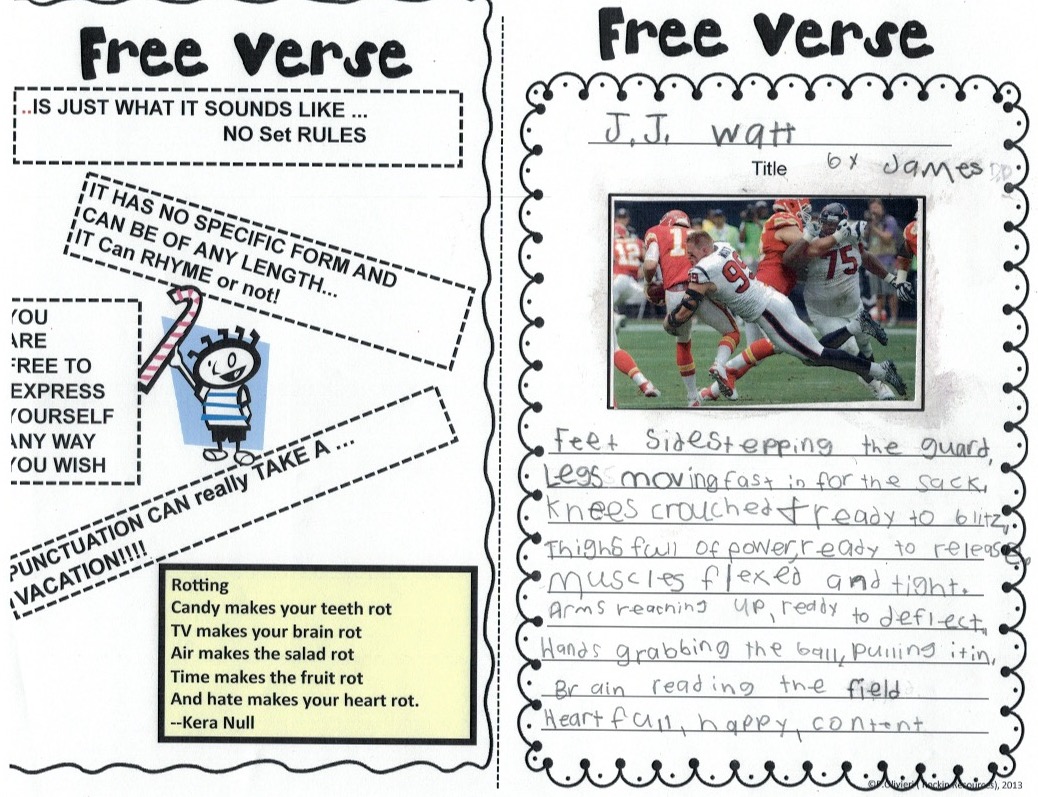 Free Verse
..IS JUST WHAT IT SOUNDS LIKE ...
NO Set RULES
IT HAS NO SPECIFIC FORM AND
CAN BE OF ANY LENGTH...
IT Can RHYME or not!
YOU
ARE
FREE TO
EXPRESS
YOURSELF
ANY WAY
YOU WISH
PUNCTUATION CAN really TAKE A ...
VACATION!!!!
Rotting
Candy makes your teeth rot
TV makes your brain rot
Air makes the salad rot
Time makes the fruit rot
And hate makes your heart rot.
--Kera Null
Free Verse
J.J. Watt
Title
by James
12
1
99
75
Feet sidestepping the guard,
Legs moving fast in for the sack,
Knees crouched + ready to blitz,
Thighs full of power, ready to release,
Muscles flexed and tight.
Arms reaching up, ready to deflect,
Hands grabbing the ball, pulling it in,
Brain reading the field
Heart full, happy, content
2013